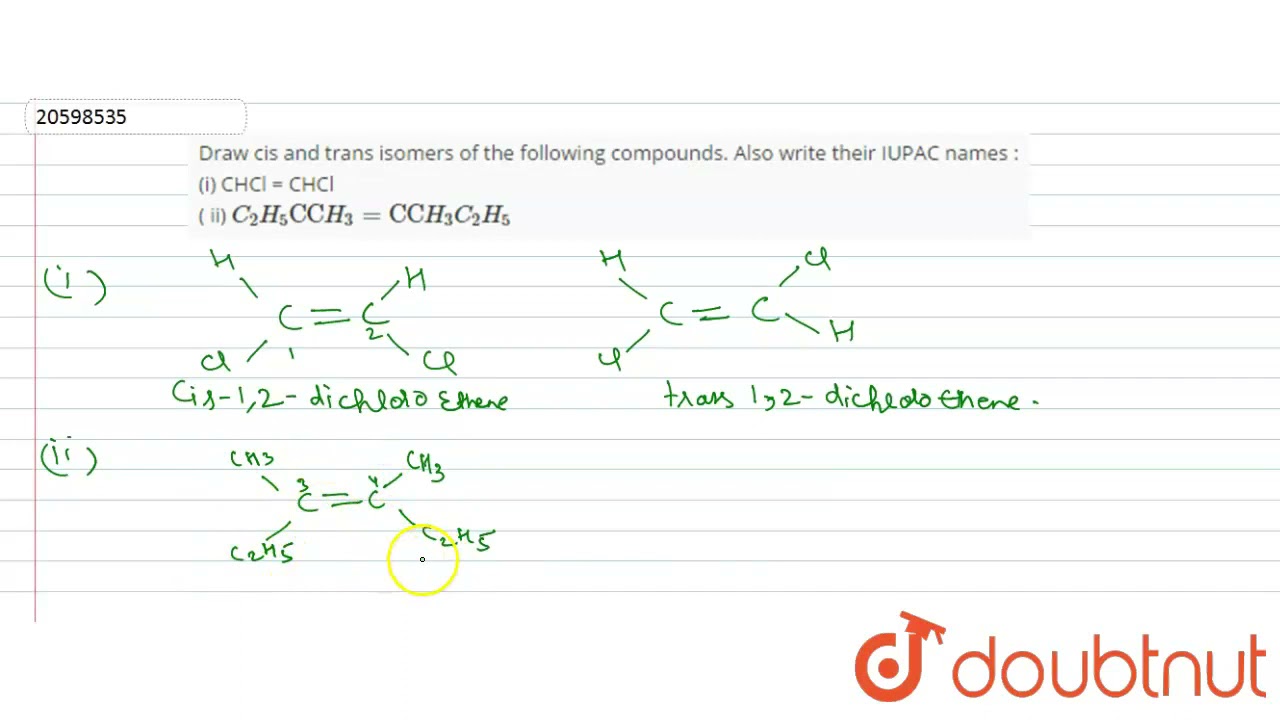 20598535
Draw cis and trans isomers of the following compounds. Also write their IUPAC names :
(i) CHCl = CHCl
( ii) C₂H₅CCH₃ = CCH₃C₂H₅
(i)
H H
C = C
1 2
Cl Cl
Cis-1,2-dichloro Ethene
H Cl
C = C
Cl H
trans 1,2-dichloro Ethene.
(ii)
CH3 CH3
3 4
C = C
C2H5 C2H5
doubtnut